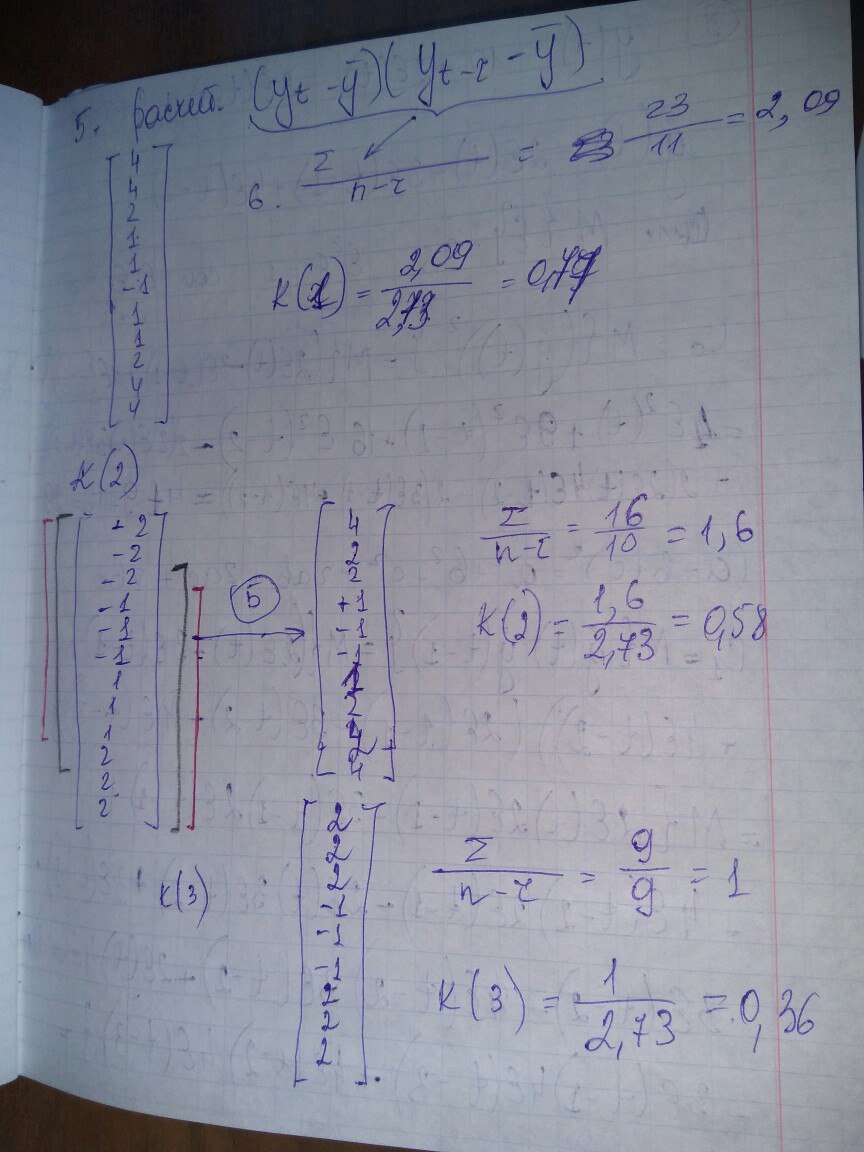 5. расчет. (yt - ȳ)(yt-τ - ȳ)
6. Σ / n-τ = 23 / 11 = 2,09
4
4
2
1
1
-1
1
1
2
4
4
K(1) = 2,09 / 2,73 = 0,77
K(2)
-2
-2
-2
-1
-1
-1
1
1
1
2
2
2
5
4
2
2
+1
-1
-1
1
2
2
4
Σ / n-τ = 16 / 10 = 1,6
K(2) = 1,6 / 2,73 = 0,58
K(3)
2
2
2
-1
-1
-1
2
2
2
Σ / n-τ = 9 / 9 = 1
K(3) = 1 / 2,73 = 0,36